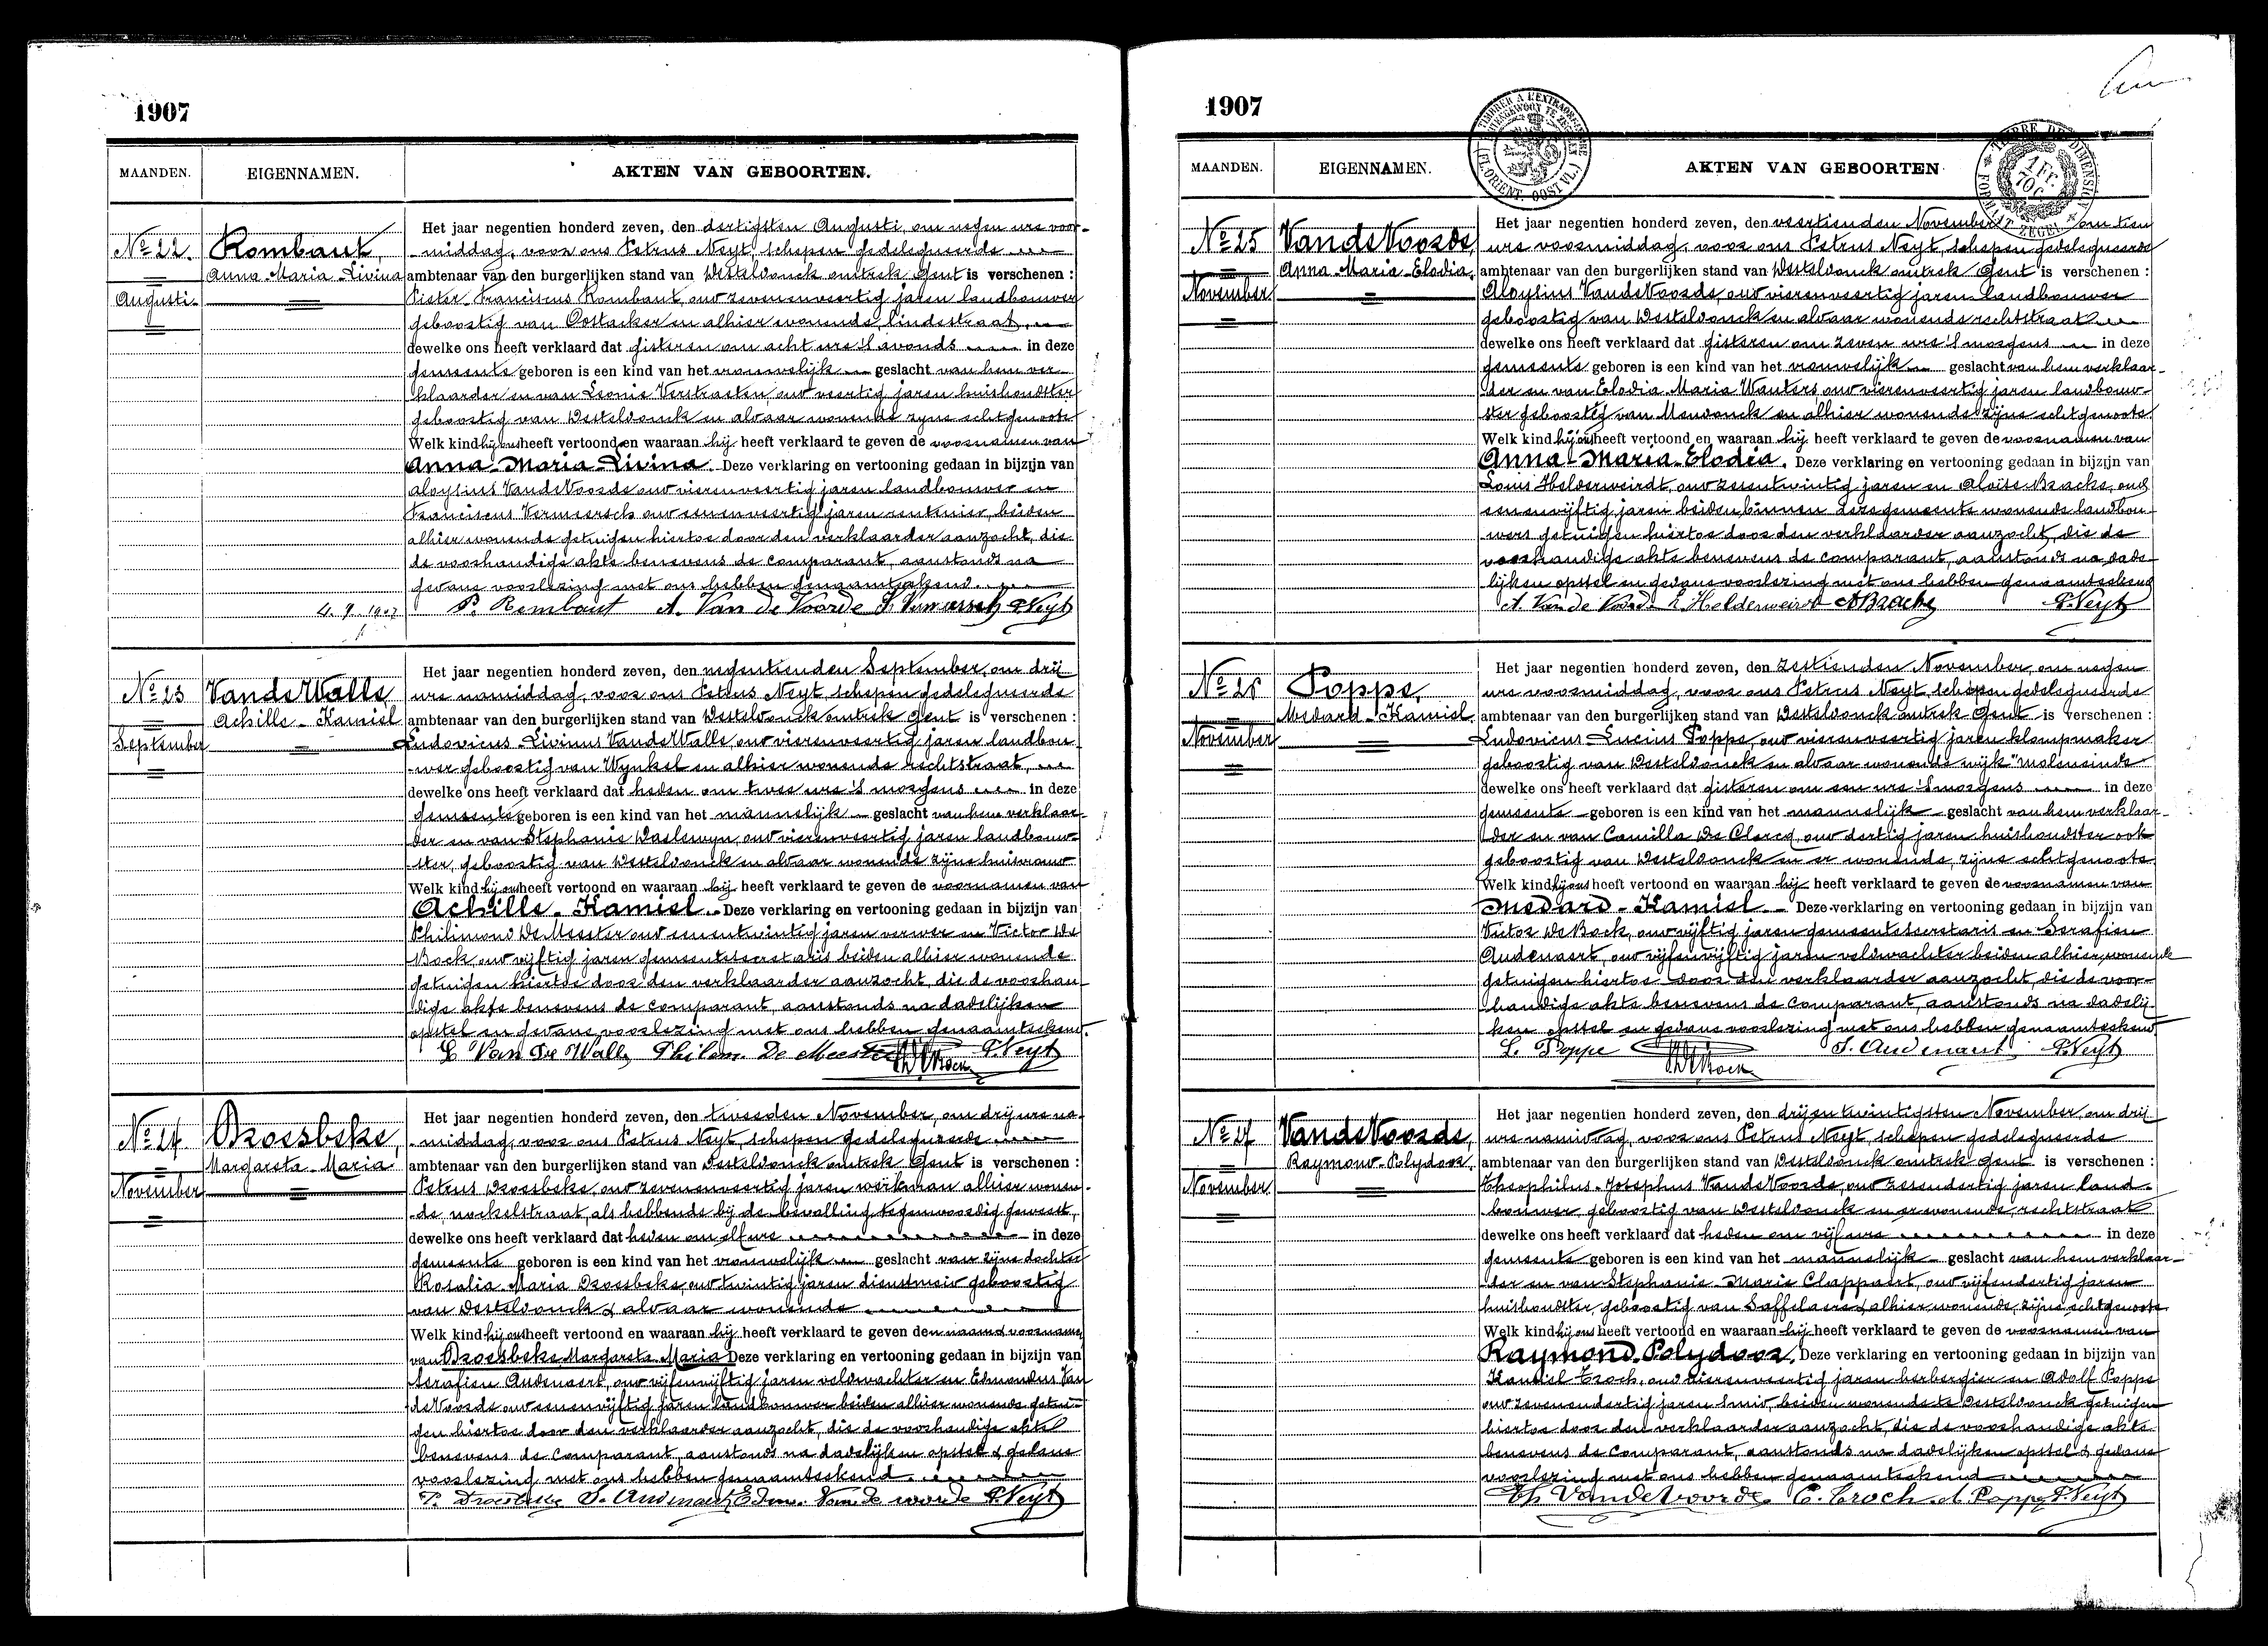 1907
MAANDEN.
EIGENNAMEN.
AKTEN VAN GEBOORTEN.
No 22.
Augusti.
Rombaut,
Anna Maria Livina
Het jaar negentien honderd zeven, den dertigsten Augusti, om negen ure voor-
middag, voor ons Petrus Neyt, schepen gedelegueerde
ambtenaar van den burgerlijken stand van Desteldonck omtrek Gent is verschenen :
Pieter Franciscus Rombaut, oud zevenenveertig jaren landbouwer
geboortig van Oostacker en alhier wonende, lindestraat,
dewelke ons heeft verklaard dat gisteren om acht ure 's avonds in deze
gemeente geboren is een kind van het vrouwelijk geslacht van hem ver-
klaarder en van Leonie Verstraeten, oud veertig jaren huishoudster
geboortig van Desteldonck en aldaar wonende zyne echtgenoote
Welk kind hij ons heeft vertoond en waaraan hij heeft verklaard te geven de voornamen van
Anna-Maria-Livina. Deze verklaring en vertooning gedaan in bijzijn van
aloysius VandeVoorde oud vierenveertig jaren landbouwer en
Franciscus Vermeersch oud eenenveertig jaren rentenier, beiden
alhier wonende getuigen hiertoe door den verklaarder aanzocht, die
de voorhandige akte benevens de comparant, aanstonds na
gedane voorlezing met ons hebben genaamteekend.
4. 9. 1907
P. Rombaut A. Van de Voorde F. Vermeersch P. Neyt
No 23
September
VandeWalle
Achille - Kamiel
Het jaar negentien honderd zeven, den negentienden September, om drij
ure namiddag, voor ons Petrus Neyt, schepen gedelegueerde
ambtenaar van den burgerlijken stand van Desteldonck omtrek Gent is verschenen :
Ludovicus-Livinus VandeWalle, oud vierenveertig jaren landbou-
wer geboortig van Wynkel en alhier wonende rechtstraat,
dewelke ons heeft verklaard dat heden om twee ure 's morgens in deze
gemeente geboren is een kind van het mannelijk geslacht van hem verklaar-
der en van Stephanie Daelewyn, oud vierenveertig jaren landbouw-
ster, geboortig van Desteldonck en aldaar wonende zijne huisvrouw
Welk kind hij ons heeft vertoond en waaraan hij heeft verklaard te geven de voornamen van
Achille-Kamiel. Deze verklaring en vertooning gedaan in bijzijn van
Philimond De Meester oud eenentwintig jaren verwer en Victor De
Bock, oud vijftig jaren gemeentesecretaris beiden alhier wonende
getuigen hiertoe door den verklaarder aanzocht, die de voorhan-
dige akte benevens de comparant, aanstonds na dadelijken
opstel en gedane voorlezing met ons hebben genaamteekend.
L Van De Walle Philem. De Meester P. Neyt
VDeBock
No 24
November
Droesbeke,
Margareta-Maria
Het jaar negentien honderd zeven, den tweeden November, om drij ure na-
middag, voor ons Petrus Neyt, schepen gedelegueerde
ambtenaar van den burgerlijken stand van Desteldonck omtrek Gent is verschenen :
Petrus Droesbeke, oud zevenenveertig jaren werkman alhier wonen-
de, nockelstraat, als hebbende bij de bevalling tegenwoordig geweest,
dewelke ons heeft verklaard dat heden om elf ure in deze
gemeente geboren is een kind van het vrouwelijk geslacht van zijne dochter
Rosalia-Maria Droesbeke, oud twintig jaren dienstmeid geboortig
van Desteldonck & aldaar wonende
Welk kind hij ons heeft vertoond en waaraan hij heeft verklaard te geven den naam & voornamen
van Droesbeke, Margareta-Maria Deze verklaring en vertooning gedaan in bijzijn van
Serafien Audenaert, oud vijfenvijftig jaren veldwachter en Edmondus Van
de Voorde oud eenenvijftig jaren landbouwer beiden alhier wonende getui-
gen hiertoe door den verklaarder aanzocht, die de voorhandige akte
benevens de comparant, aanstonds na dadelijken opstel & gedane
voorlezing met ons hebben genaamteekend.
P. Droesbeke S. Audenaert Edm. Van de woorde P. Neyt
1907
MAANDEN.
EIGENNAMEN.
AKTEN VAN GEBOORTEN
TIMBRER A L'EXTRAORDINAIRE
FL. ORIENT. OOST VL.
TIMBRE DE DIMENSION
1 Fr. 70 C.
FORMAAT ZEGEL
No 25
November
VandeVoorde,
Anna Maria-Elodia.
Het jaar negentien honderd zeven, den veertienden November om tien
ure voormiddag, voor ons Petrus Neyt, schepen gedelegueerde
ambtenaar van den burgerlijken stand van Desteldonck omtrek Gent is verschenen :
Aloysius VandeVoorde, oud vierenveertig jaren landbouwer
geboortig van Desteldonck en aldaar wonende rechtstraat
dewelke ons heeft verklaard dat gisteren om zeven ure 's morgens in deze
gemeente geboren is een kind van het vrouwelijk geslacht van hem verklaar-
der en van Elodia-Maria Wauters, oud vierenveertig jaren landbouw-
ster geboortig van Mendonck en alhier wonende zijne echtgenoote
Welk kind hij ons heeft vertoond en waaraan hij heeft verklaard te geven de voornamen van
Anna-Maria-Elodia. Deze verklaring en vertooning gedaan in bijzijn van
Louis Helderweirdt, oud zesentwintig jaren en Aloïse Bracke, oud
eenenvijftig jaren beiden binnen deze gemeente wonende landbou-
wers getuigen hiertoe door den verklaarder aanzocht, die de
voorhandige akte benevens de comparant, aanstonds na dade-
lijken opstel en gedane voorlezing met ons hebben genaamteekend
A. Van de Voorde L Helderweirdt A Bracke P. Neyt
No 26
November
Poppe,
Medard-Kamiel
Het jaar negentien honderd zeven, den zestienden November, om negen
ure voormiddag, voor ons Petrus Neyt, schepen gedelegueerde
ambtenaar van den burgerlijken stand van Desteldonck omtrek Gent is verschenen :
Ludovicus-Lucius Poppe, oud vierenveertig jaren klompmaker
geboortig van Desteldonck en aldaar wonende wijk "moleneinde
dewelke ons heeft verklaard dat gisteren om een ure 's morgens in deze
gemeente geboren is een kind van het mannelijk geslacht van hem verklaar-
der en van Camilla De Clercq, oud dertig jaren huishoudster ook
geboortig van Desteldonck en er wonende, zijne echtgenoote
Welk kind hij ons heeft vertoond en waaraan hij heeft verklaard te geven de voornamen van
Medard-Kamiel. Deze verklaring en vertooning gedaan in bijzijn van
Victor DeBock, oud vijftig jaren gemeentesecretaris en Serafien
Audenaert, oud vijfenvijftig jaren veldwachter beiden alhier wonende
getuigen hiertoe door den verklaarder aanzocht, die de voor-
handige akte benevens de comparant, aanstonds na dadelij-
ken opstel en gedane voorlezing met ons hebben genaamteekend
L. Poppe S. Audenaert P. Neyt
VDeBock
No 27
November
VandeVoorde,
Raymond-Polydoor.
Het jaar negentien honderd zeven, den drijentwintigsten November om drij
ure namiddag, voor ons Petrus Neyt, schepen gedelegueerde
ambtenaar van den burgerlijken stand van Desteldonck omtrek Gent is verschenen :
Theophilus-Josephus VandeVoorde, oud zesendertig jaren land-
bouwer, geboortig van Desteldonck en er wonende, rechtstraat
dewelke ons heeft verklaard dat heden om vijf ure in deze
gemeente geboren is een kind van het mannelijk geslacht van hem verklaar-
der en van Stephanie-Marie Clappaert, oud vijfendertig jaren
huishoudster, geboortig van Saffelaere & alhier wonende, zijne echtgenoote.
Welk kind hij ons heeft vertoond en waaraan hij heeft verklaard te geven de voornamen van
Raymond-Polydoor. Deze verklaring en vertooning gedaan in bijzijn van
Kamiel Croch, oud vierenveertig jaren herbergier en Adolf Poppe
oud zevenendertig jaren smid, beiden wonende te Desteldonck getuigen
hiertoe door den verklaarder aanzocht, die de voorhandige akte
benevens de comparant, aanstonds na dadelijken opstel & gedane
voorlezing met ons hebben genaamteekend
Th Vandevoorde C. Croch A Poppe P. Neyt